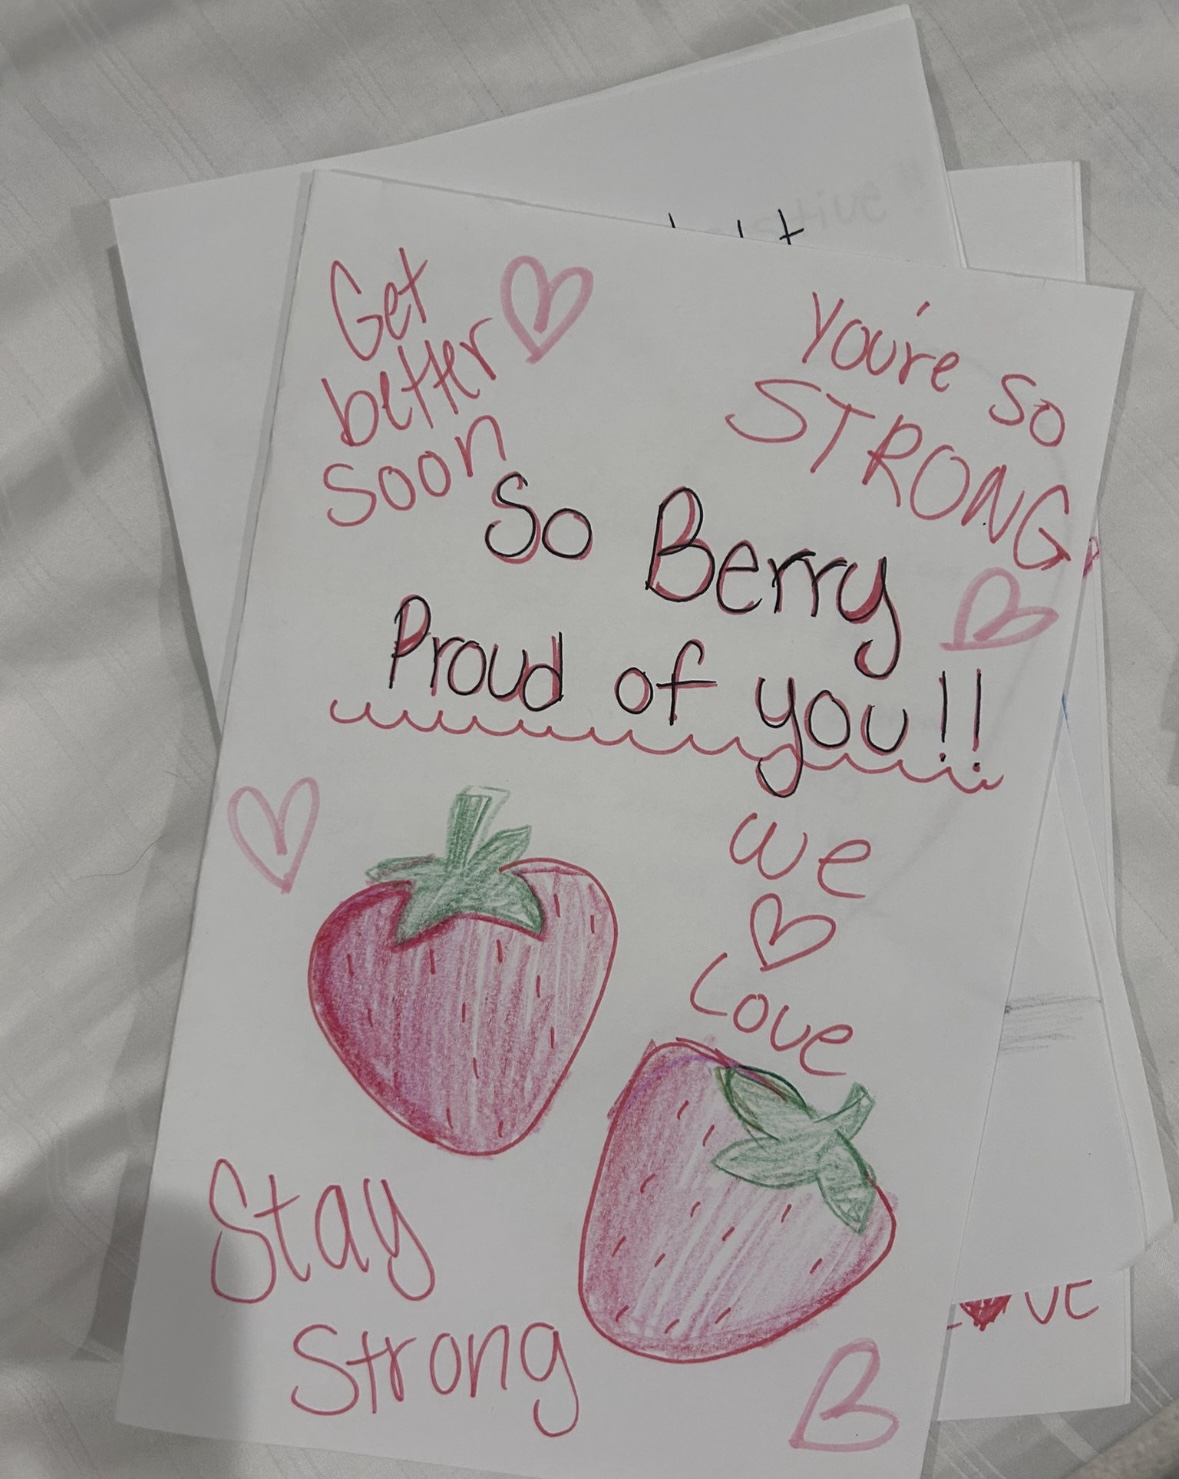 Get
better
soon
You're so
STRONG
So Berry
Proud of you!!
we
Love
Stay
Strong